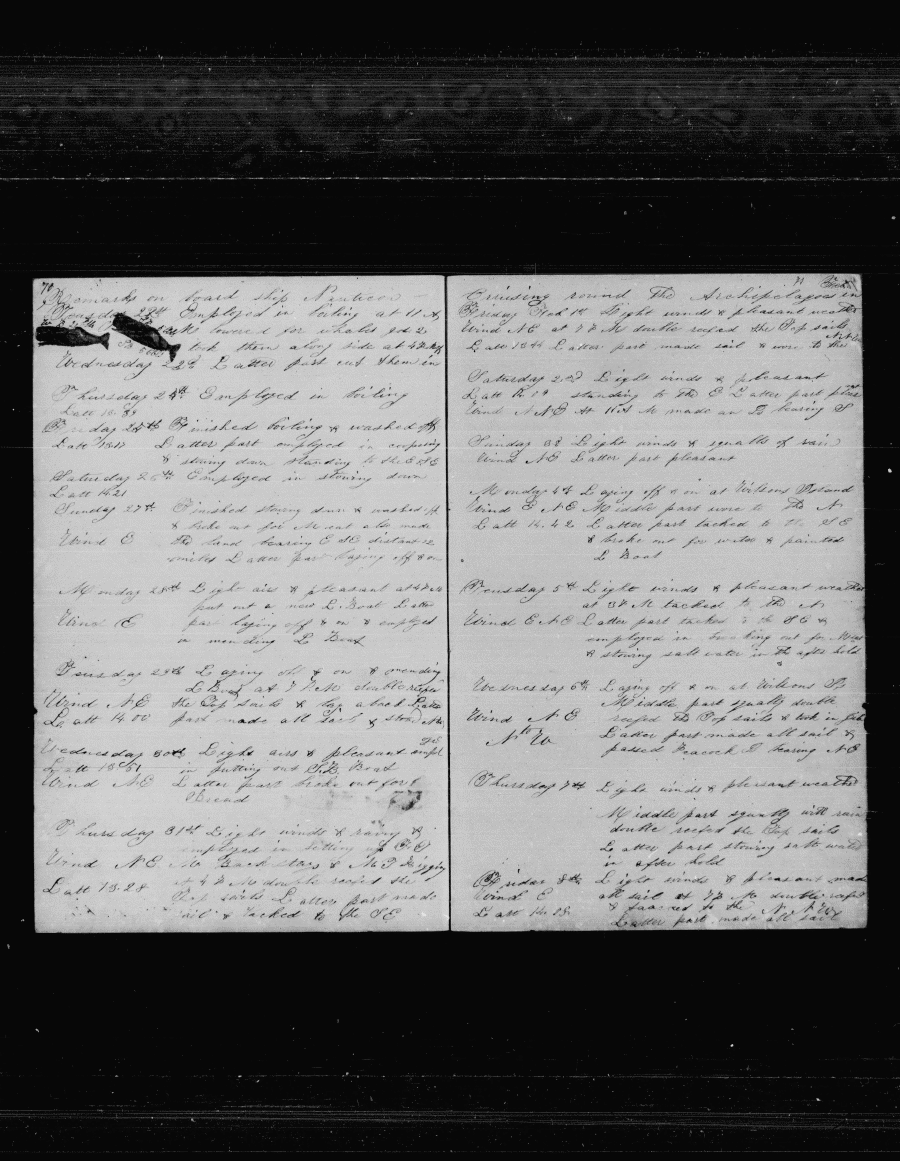 70
Remarks on board ship Nauticon
Tuesday 22th Employed in boiling at 11 A
lowered for whales got 2
took them along side at 4 PM
Wednesday 23 Latter part cut them in
Thursday 24th Employed in boiling
Latt 13.39
Friday 25th Finished boiling & washed off
Latt Latter part employed in coopering
& stowing down standing to the E SE
Saturday 26th Employed in stowing down
Latt 14.21
Sunday 27th Finished stowing down & washed off
& broke out for Meat also made
Wind E the land bearing E SE distant 12
miles Latter part laying off & on
Monday 28th Light airs & pleasant at 4 PM
put out a new L Boat Latter
Wind E part laying off & on & employed
in mending L Boat
Teusday 29th Laying off & on & mending
L Boat at 7 PM double reefed
Wind NE the Top sails & Latter
Latt 14.00 part made all sail & stood
Wednesday 30th Light airs & pleasant empl
Latt 13.51 in putting out Boat
Wind NE Latter part broke out for
Bread
Thursday 31st Light winds & rainy &
employed in setting up
Wind NE Back stays & Rigging
Latt 13.28 At 4 PM double reefed the
Top sails Latter part made
sail & tacked to the SE
71 Feb
Cruising round The Archipelagoes in
Friday Feb 1st Light winds & pleasant weather
Wind NE at 7 PM double reefed the Top sails
Latt Latter part made sail & wore to the N NW
Saturday 2nd Light winds & pleasant
Latt standing to the E Latter part pleasant
Wind N NE At 11 A M made an I bearing S
Sunday 3d Light winds & squalls of rain
Wind NE Latter part pleasant
Monday 4th Laying off & on at Wilsons Island
Wind E NE Middle part wore to the N
Latt 14.42 Latter part tacked to the SE
& broke out for water & painted
L Boat
Teusday 5th Light winds & pleasant weather
at 3 PM tacked to the N
Wind E NE Latter part tacked to the SE &
employed in breaking out for Meat
& stowing salt water in the after hold
Wednesday 6th Laying off & on at Wilsons Is
Middle part squally double
Wind NE reefed the Top sails & took in Jib
N to W Latter part made all sail &
passed Peacock I bearing NE
Thursday 7th Light winds & pleasant weather
Middle part squally with rain
double reefed the Top sails
Latter part stowing salt water
in after hold
Friday 8th Light winds & pleasant made
Wind E all sail at 7 PM double reefed
Latt & tacked to the N NW
Latter part made all sail